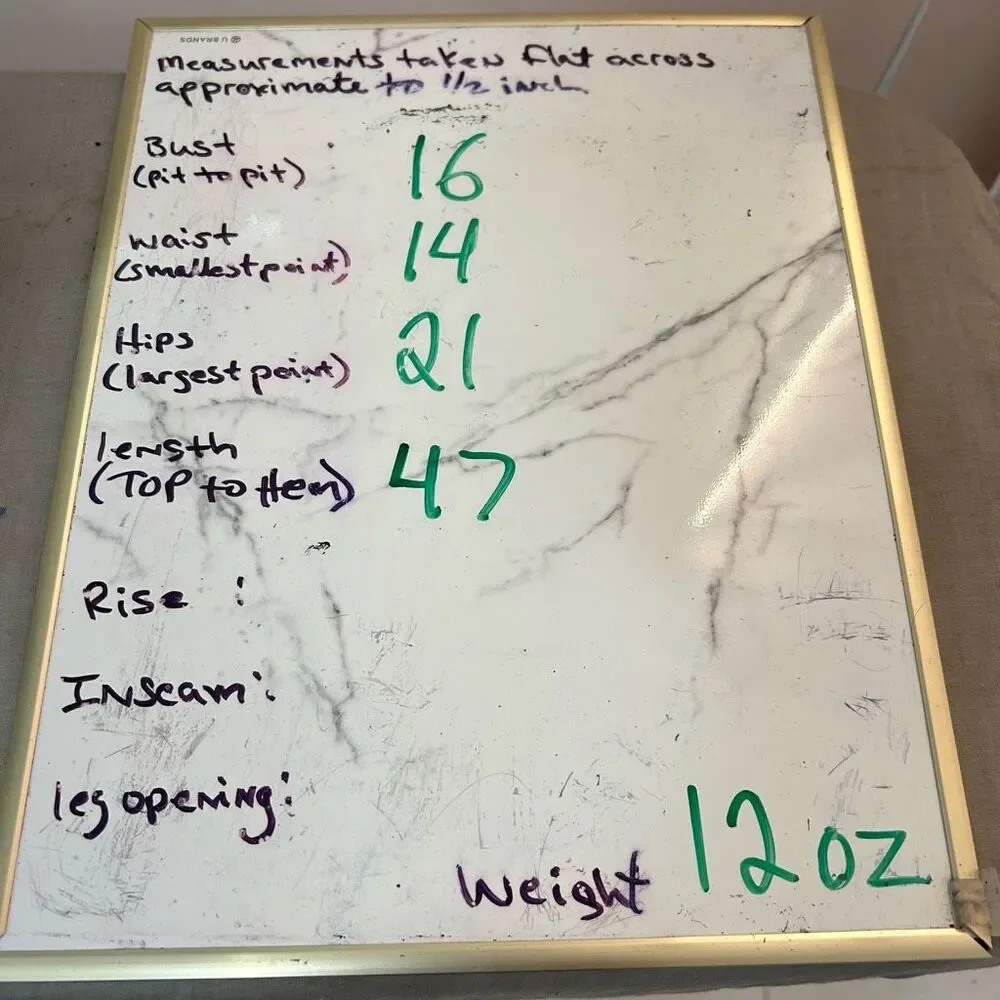 U BRANDS
measurements taken flat across
approximate to 1/2 inch
Bust : 16
(pit to pit)
waist 14
(smallest point)
Hips 21
(largest point)
length 47
(TOP to Hem)
Rise :
Inseam :
leg opening :
Weight 12 oz